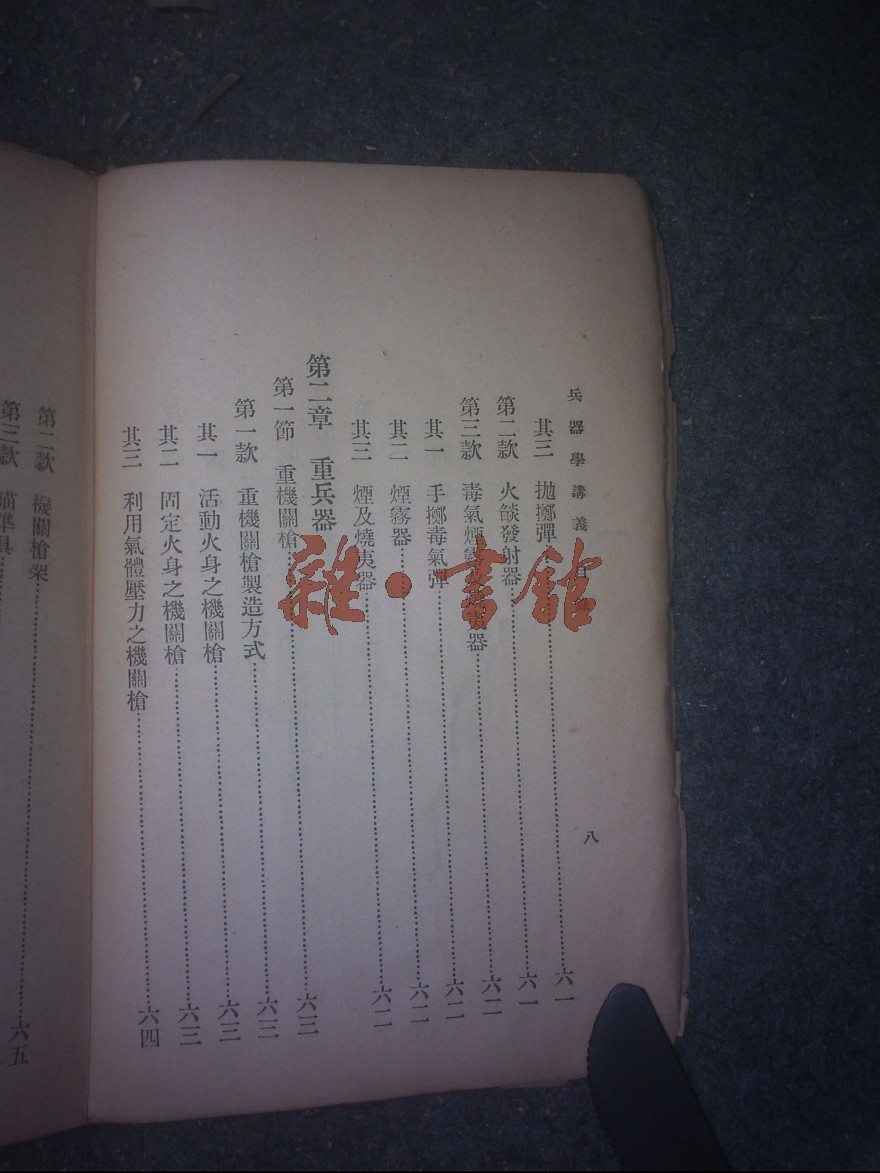 兵器學講義 目
八
其三 拋擲彈 六一
第二款 火燄發射器 六一
第三款 毒氣煙霧 器 六二
其一 手擲毒氣彈 六二
其二 煙霧器 六二
其三 煙及燒夷器 六二
第二章 重兵器
第一節 重機關槍 六三
第一款 重機關槍製造方式 六三
其一 活動火身之機關槍 六三
其二 固定火身之機關槍 六三
其三 利用氣體壓力之機關槍 六四
第二款 機關槍架 六五
第三款 瞄準具
雜·書館